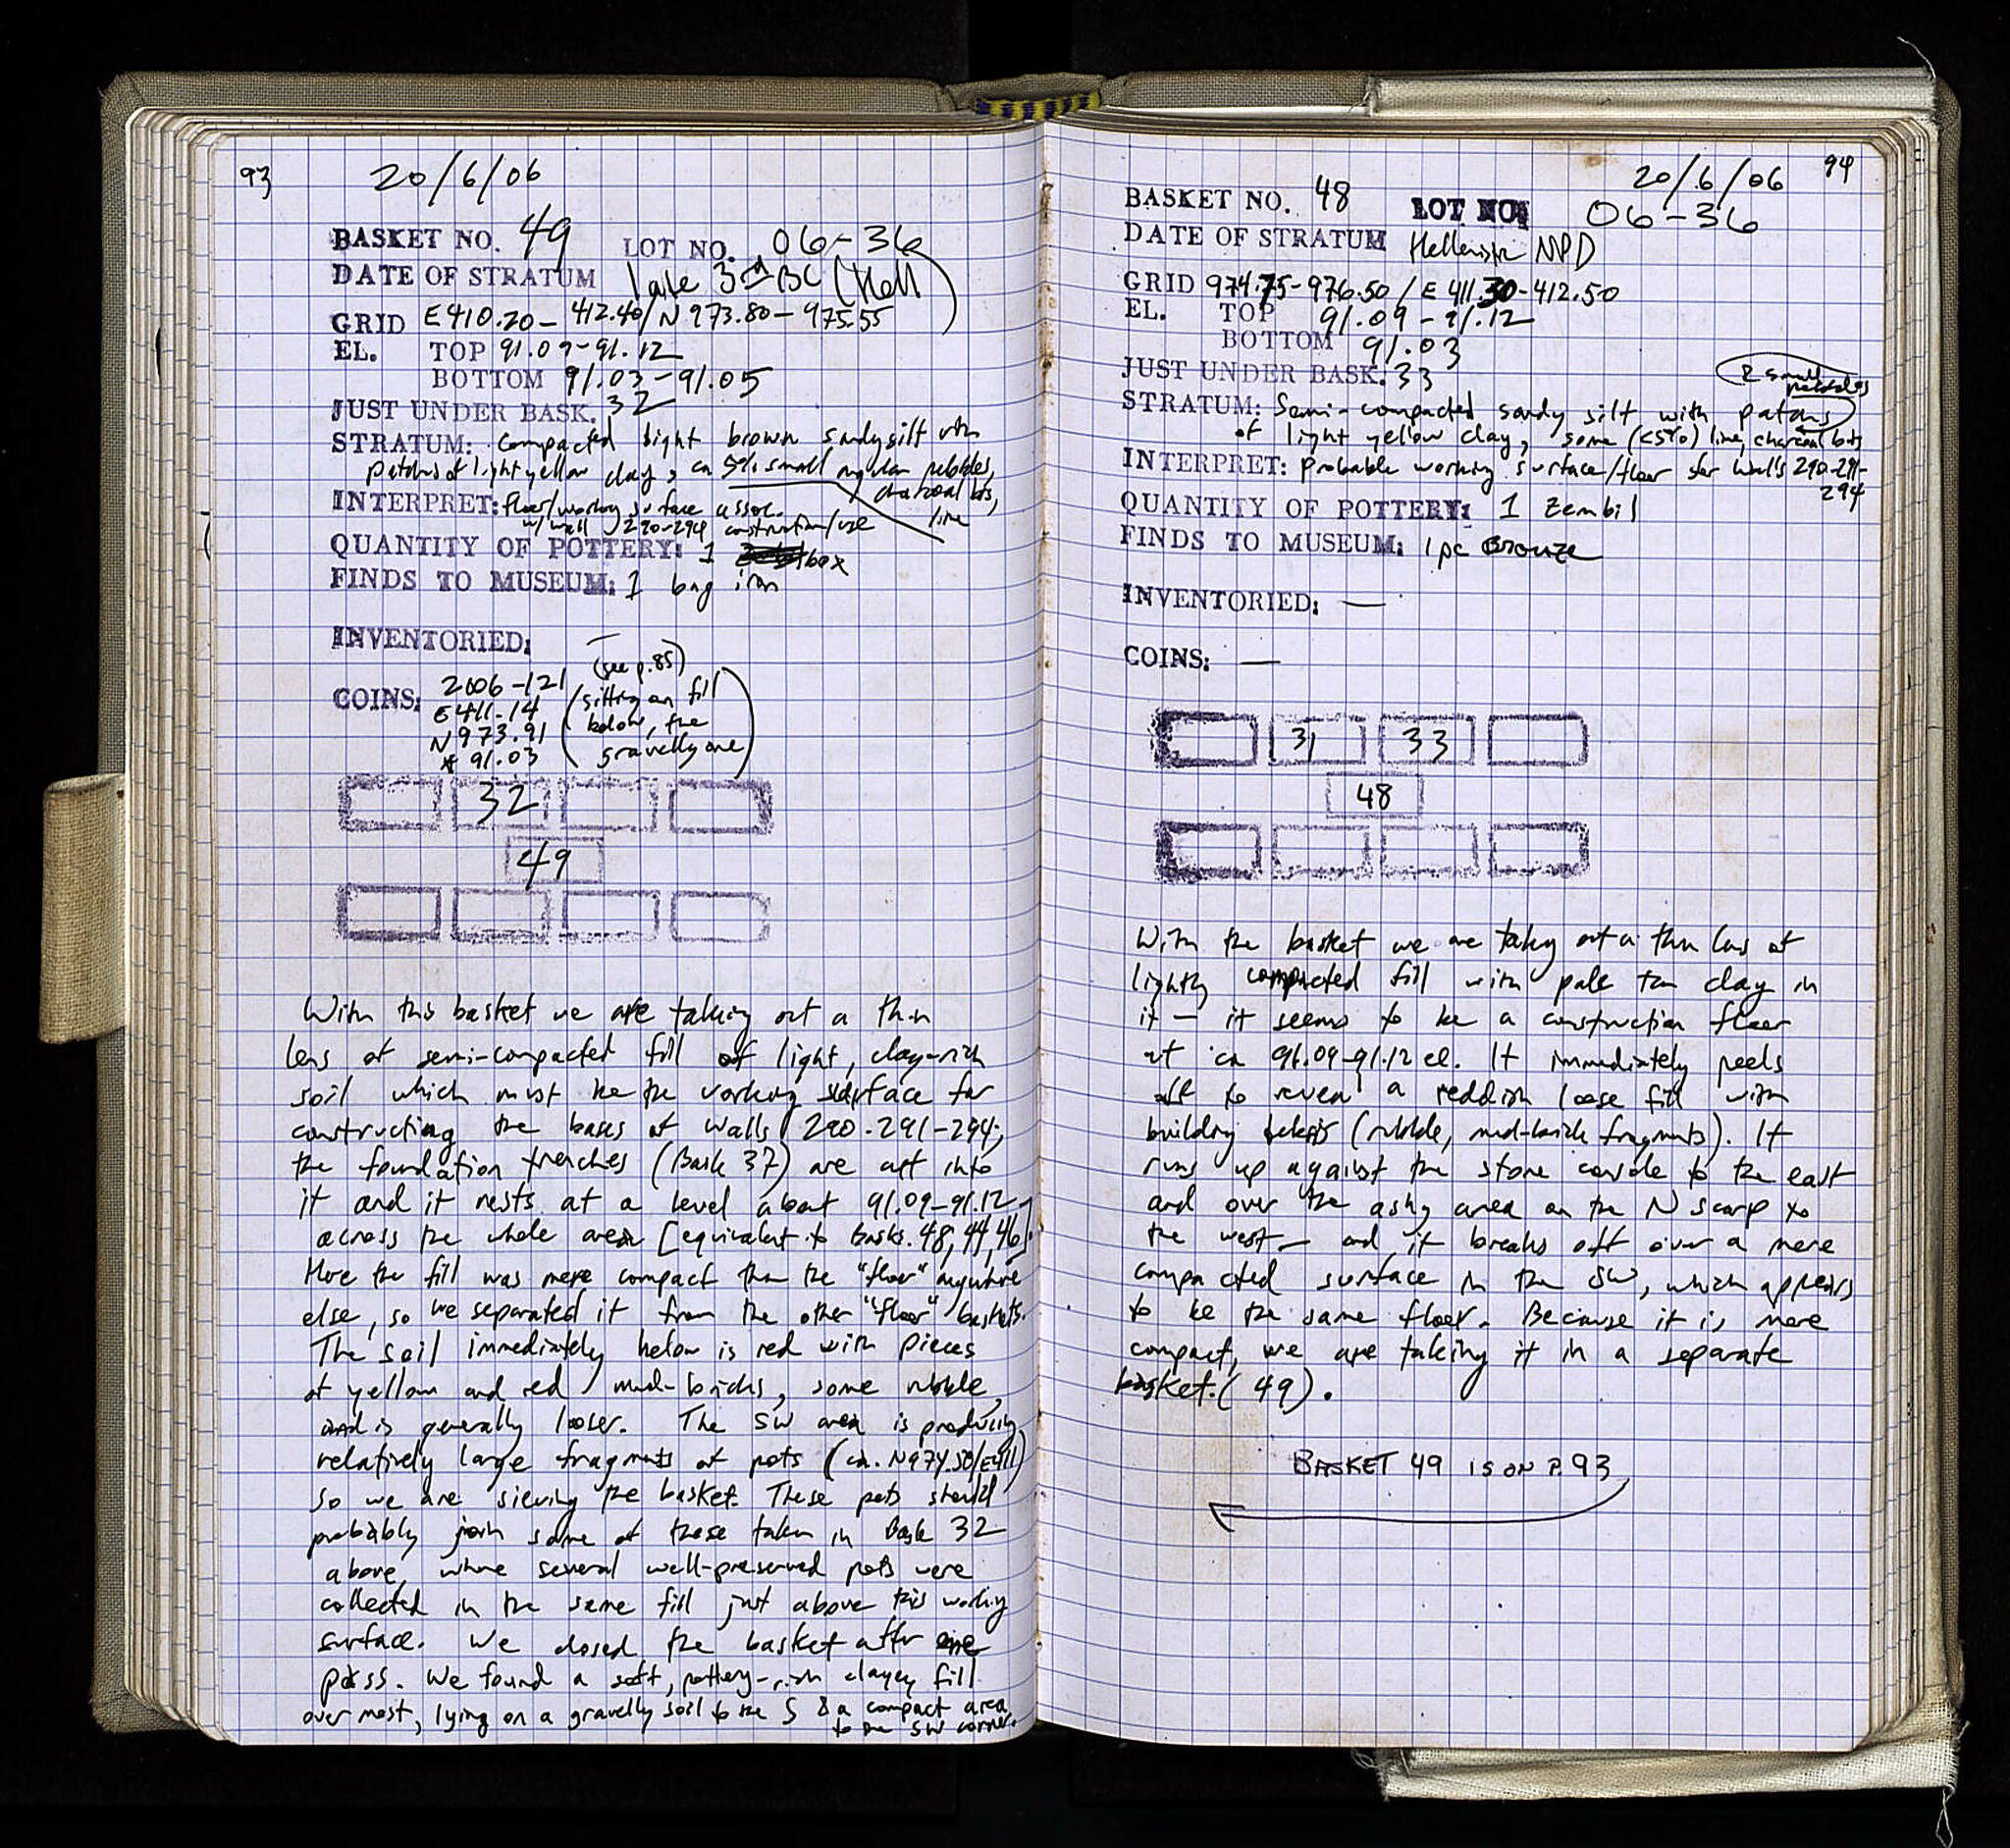 93
20/6/06
BASKET NO. 49 LOT NO. 06-36
DATE OF STRATUM late 3rd BC (Hell)
GRID E410.20 - 412.40/N973.80 - 975.55
EL. TOP 91.09-91.12
BOTTOM 91.03-91.05
JUST UNDER BASK. 32
STRATUM: Compacted light brown sandy silt with
patches of light yellow clay, ca 5% small angular pebbles,
charcoal bits,
lime
INTERPRET: floor/working surface assoc.
w/ wall 290-294 construction/use
QUANTITY OF POTTERY: 1 box
FINDS TO MUSEUM: 1 bag iron
INVENTORIED: —
(see p. 85)
COINS: 2006-121
E411.14
N973.91
* 91.03
(sitting on fill
below, the
gravelly one)
32
49
With this basket we are taking out a thin
lens of semi-compacted fill of light, clay-rich
soil which must be the working surface for
constructing the bases of walls 290-291-294;
the foundation trenches (Bask 37) are cut into
it and it rests at a level about 91.09-91.12
across the whole area [equivalent to Basks. 48, 44, 46].
Here the fill was more compact than the "floor" anywhere
else, so we separated it from the other "floor" baskets.
The soil immediately below is red with pieces
of yellow and red mud-bricks, some rubble,
and is generally looser. The SW area is producing
relatively large fragments of pots (ca. N974.50/E411)
so we are sieving the basket. These pots should
probably join some of those taken in Bask 32
above, where several well-preserved pots were
collected in the same fill just above this working
surface. We closed the basket after one
pass. We found a soft, pottery-rich clayey fill
over most, lying on a gravelly soil to the S & a compact area
to the SW corner.
94
20/6/06
BASKET NO. 48 LOT NO. 06-36
DATE OF STRATUM Hellenistic NPD
GRID 974.75-976.50 / E 411.30-412.50
EL. TOP 91.09-91.12
BOTTOM 91.03
JUST UNDER BASK. 33
& small
pebbles
STRATUM: Semi-compacted sandy silt with patches
of light yellow clay, some (<5%) lime, charcoal bits
INTERPRET: probable working surface/floor for Walls 290-291-
294
QUANTITY OF POTTERY: 1 Zembil
FINDS TO MUSEUM: 1 pc Bronze
INVENTORIED: —
COINS: —
31 33
48
With the basket we are taking out a thin lens of
lightly compacted fill with pale tan clay in
it — it seems to be a construction floor
at ca 91.09-91.12 el. It immediately peels
off to reveal a reddish loose fill with
building debris (rubble, mud-brick fragments). It
runs up against the stone console to the east
and over the ashy area on the N scarp to
the west — and it breaks off over a more
compacted surface in the SW, which appears
to be the same floor. Because it is more
compact, we are taking it in a separate
basket. (49).
BASKET 49 IS ON P. 93